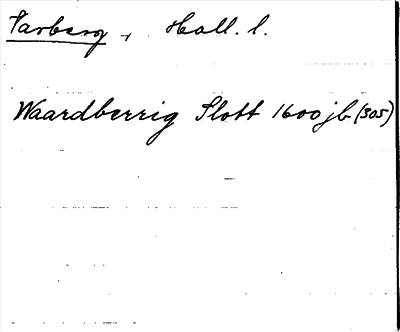 Varberg, Hall. l.
Waardberrig Slott 1600 jb (505)